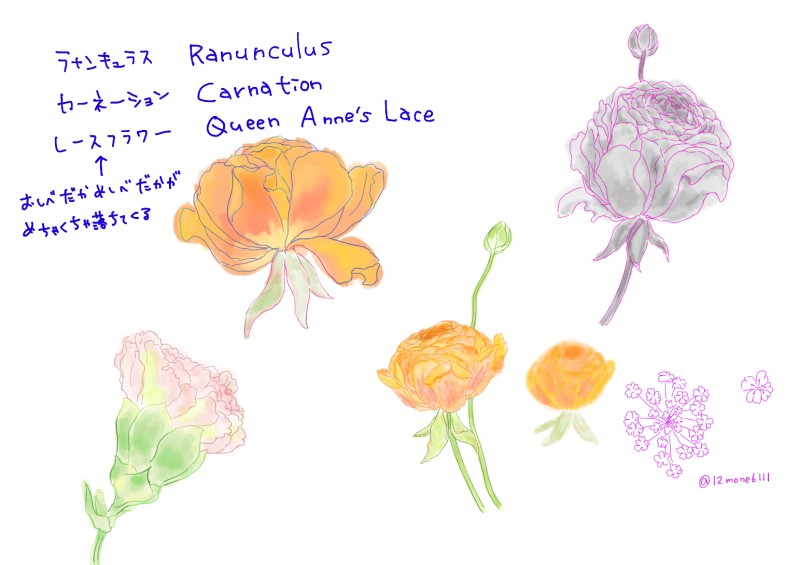 ラナンキュラス Ranunculus
カーネーション Carnation
レースフラワー Queen Anne's Lace
おしべだかめしべだかが
めちゃくちゃ落ちてくる
@12mone6111